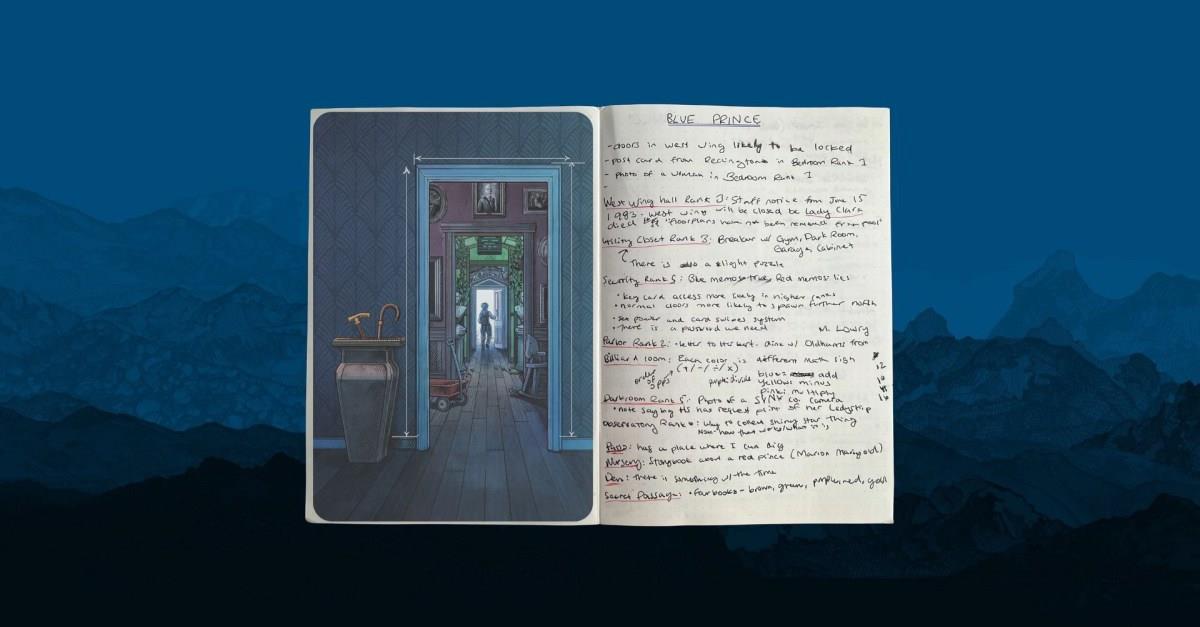 BLUE PRINCE
- doors in west wing likely to be locked
- post card from Reddington in Bedroom Rank 1
- photo of a woman in Bedroom Rank 1
-
West Wing hall Rank 3: Staff notice from June 15
1993. West wing will be closed be Lady Clara
died "floorplans have not been removed from pool"
Utility Closet Rank 3: Breaker w/ Gym, Dark Room,
Garage, Cabinet
There is also a slight puzzle
Security Rank 5: Blue memos true, Red memos lies
• key card access more likely in higher ranks
• normal doors more likely to spawn further north
• see power and card swipes system
• there is a password we need
M. Lowry
Parlor Rank 2: • letter to Herbert. dine w/ Oldhams from
Billiard room: Each color is different math sign
(+/-/÷/x)
order of ops
purple: divide
blue: add
yellow: minus
pink: multiply
12
Darkroom Rank 5: Photo of a camera
• note saying HS has request print of her Ladyship
Observatory Rank: Way to collect shining star thing
Patio: has a place where I can dig
Nursery: Storybook about a red prince (Marion Marigold)
Den: there is something w/ the time
Secret Passage: • four books - brown, green, purple, red, gold